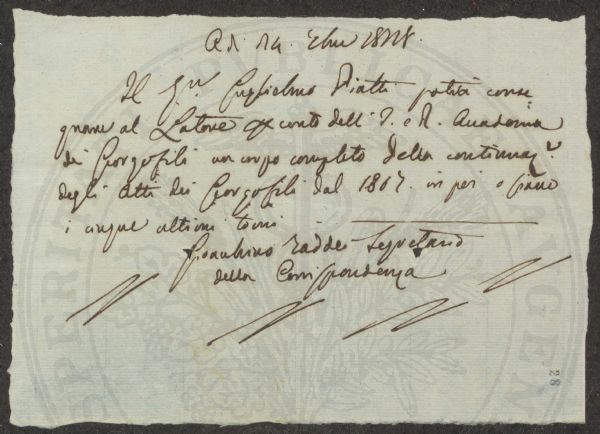 Adì 14. Xbre 1818.
Il Sigr. Guglielmo Piatti potrà conse
gnare al Latore p conto dell' I. e R. Accademia
dei Georgofili un corpo completo della continuaze.
degli Atti dei Georgofili dal 1817. in poi o siano
i cinque ultimi tomi
Gioacchino Taddei Segretario
della Corrispondenza
28